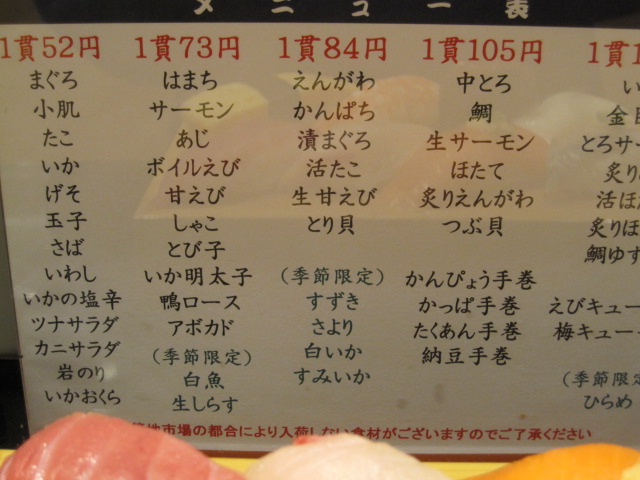 メニュー表
1貫52円
まぐろ
小肌
たこ
いか
げそ
玉子
さば
いわし
いかの塩辛
ツナサラダ
カニサラダ
岩のり
いかおくら
1貫73円
はまち
サーモン
あじ
ボイルえび
甘えび
しゃこ
とび子
いか明太子
鴨ロース
アボカド
(季節限定)
白魚
生しらす
1貫84円
えんがわ
かんぱち
漬まぐろ
活たこ
生甘えび
とり貝
(季節限定)
すずき
さより
白いか
すみいか
1貫105円
中とろ
鯛
生サーモン
ほたて
炙りえんがわ
つぶ貝
かんぴょう手巻
かっぱ手巻
たくあん手巻
納豆手巻
1貫1
い
金目
とろサー
炙り
活ほ
炙りほ
鯛ゆず
えびキュー
梅キュー
(季節限
ひらめ
築地市場の都合により入荷しない食材がございますのでご了承ください